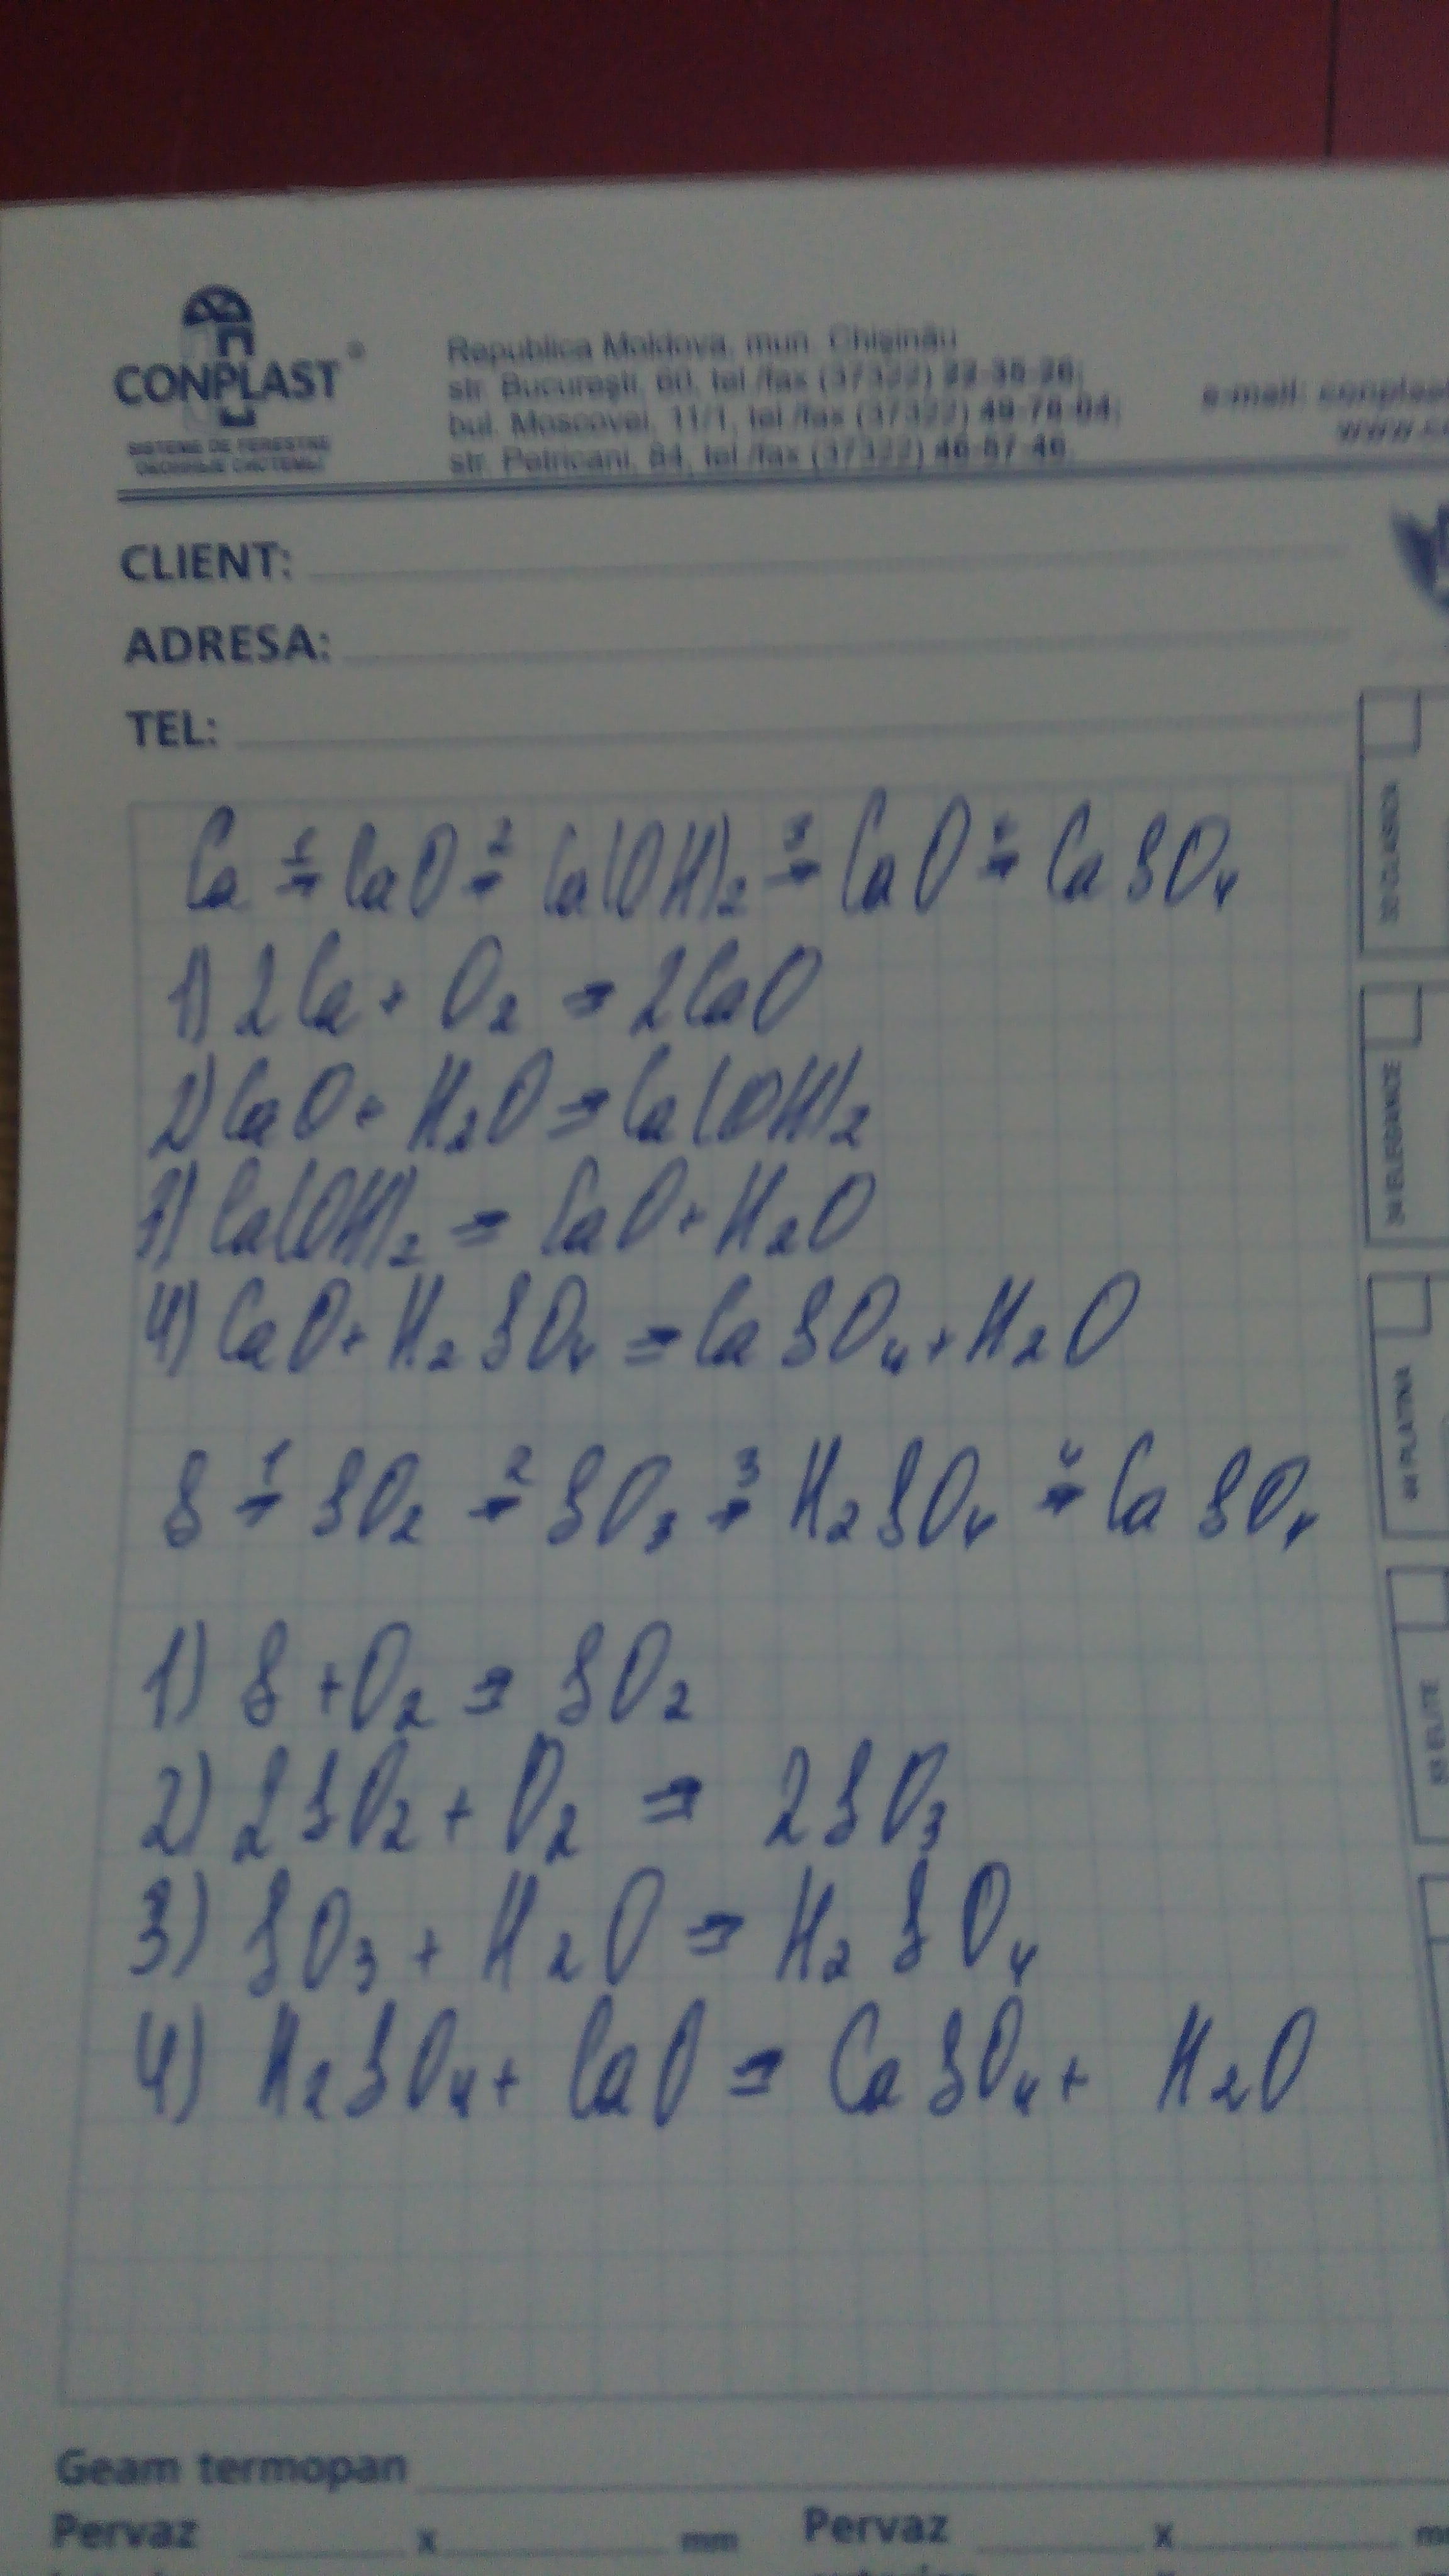 CONPLAST®
SISTEME DE FERESTRE
ОКОННЫЕ СИСТЕМЫ
Republica Moldova, mun. Chişinău
str. Bucureşti, 60, tel./fax (37322)
bul. Moscovei, 11/1, tel./fax (37322)
str. Petricani, 84, tel./fax (37322)
e-mail: conplas
www.c
CLIENT:
ADRESA:
TEL:
Ca 1→ CaO 2→ Ca(OH)₂ 3→ CaO 4→ CaSO₄
1) 2Ca + O₂ ⇒ 2CaO
2) CaO + H₂O ⇒ Ca(OH)₂
3) Ca(OH)₂ ⇒ CaO + H₂O
4) CaO + H₂SO₄ ⇒ CaSO₄ + H₂O
S 1→ SO₂ 2→ SO₃ 3→ H₂SO₄ 4→ CaSO₄
1) S + O₂ ⇒ SO₂
2) 2SO₂ + O₂ ⇒ 2SO₃
3) SO₃ + H₂O ⇒ H₂SO₄
4) H₂SO₄ + CaO ⇒ CaSO₄ + H₂O
CLASICA
ELEGANCE
PLATINA
ELITE
Geam termopan
Pervaz x mm Pervaz x m